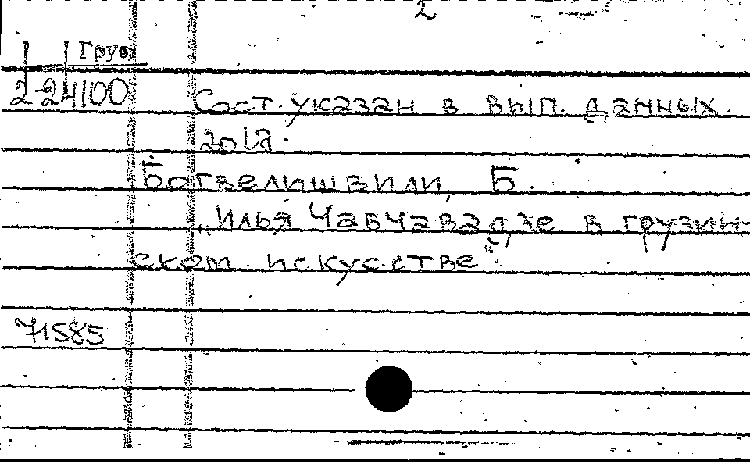 2
Груз
2-24100
Сост. указан в вып. данных.
2012.
Ботвелишвили, Б.
„Илья Чавчавадзе в грузин-
ском искусстве“.
71585